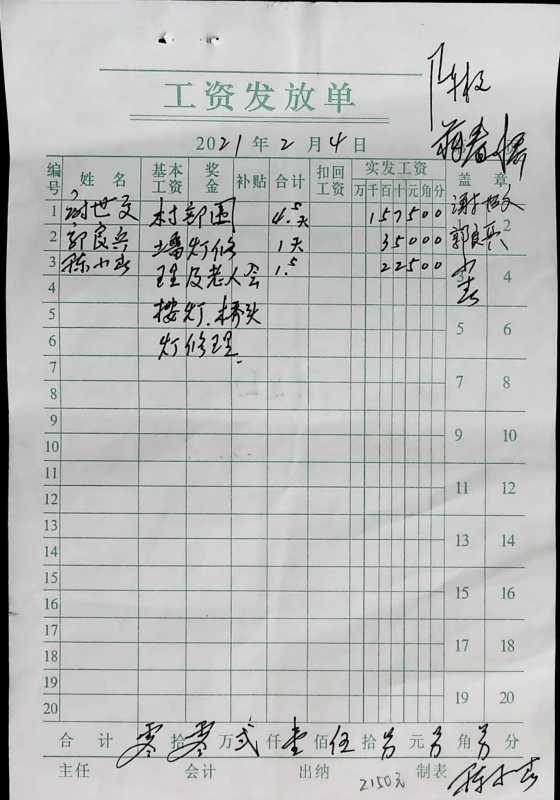 工资发放单
2021年2月4日
编号 姓名 基本工资 奖金 补贴 合计 扣回工资 实发工资 盖章
万千百十元角分
1 谢世文 村部围 4.5天 157500 谢世文 2
2 郭良兵 墙灯修 1天 35000 郭良兵
3 理及老人会 1.5 22500 4
4
5 按灯.桥头 5 6
6 灯修理.
7 7 8
8
9 9 10
10
11 11 12
12
13 13 14
14
15 15 16
16
17 17 18
18
19 19 20
20
合计 零拾零万贰仟壹佰伍拾另元另角另分
主任 会计 出纳 2150元 制表